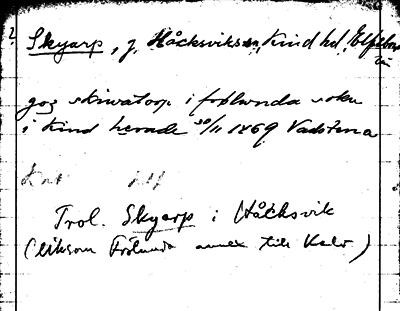 ? Skyarp, g. Håcksviks sn, Kind hd, Elfsborgs
län
goz skiwatorp i frølunda sokn
i Kind herade 30/11 1469 Vadstena
Trol. Skyarp i Håcksvik
(liksom Frölunda annex till Kalv)